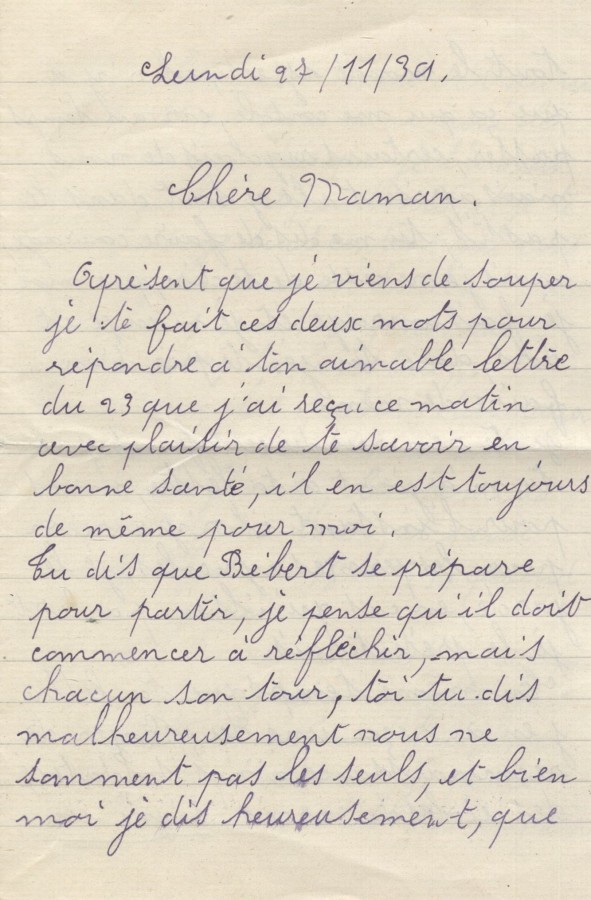 Lundi 27/11/39.
Chère Maman.
Aprésent que je viens de souper
je te fait ces deux mots pour
répondre à ton aimable lettre
du 23 que j'ai reçu ce matin
avec plaisir de te savoir en
bonne santé, il en est toujours
de même pour moi.
Tu dis que Bébert se prépare
pour partir, je pense qu'il doit
commencer à réfléchir, mais
chacun son tour, toi tu dis
malheureusement nous ne
somment pas les seuls, et bien
moi je dis heureusement, que